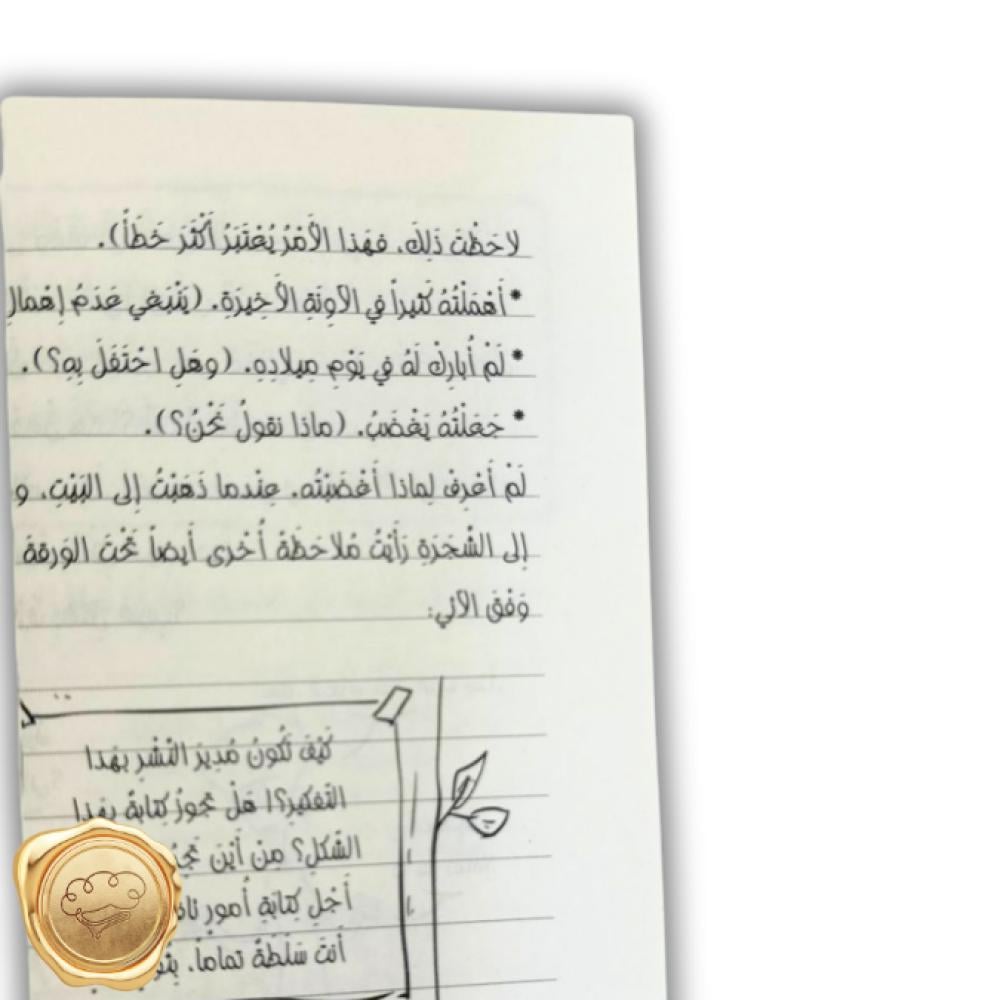 لاحَظْتَ ذَلِكَ، فهَذا الأَمْرُ يُعْتَبَرُ أَكْثَرَ خَطَأً).
* أَهْمَلْتُهُ كَثيراً في الآوِنَةِ الأَخيرَةِ. (يَنْبَغي عَدَمُ إهْمالِ
* لَمْ أُبارِكْ لَهُ في يَوْمِ ميلادِهِ. (وهَلِ احْتَفَلَ بِهِ؟).
* جَعَلْتُهُ يَغْضَبُ. (ماذا نقولُ نَحْنُ؟).
لَمْ أَعْرِفْ لِماذا أَغْضَبْتُه. عِنْدما ذَهَبْتُ إلى البَيْتِ، و
إلى الشَّجَرَةِ رَأَيْتُ مُلاحَظَةً أُخْرى أَيضاً تَحْتَ الوَرقةَ
وَفْقَ الآتي:
كَيْفَ تَكُونُ مُديرَ النَّشْرِ بِهَذا
التَّفكيرِ؟! هَلْ تَجوزُ كِتابةٌ بِهَذا
الشَّكلِ؟ مِنْ أَيْنَ
أَجْلِ كِتابَةِ أُمورٍ
أَنتَ سَلَطَةٌ تماماً.